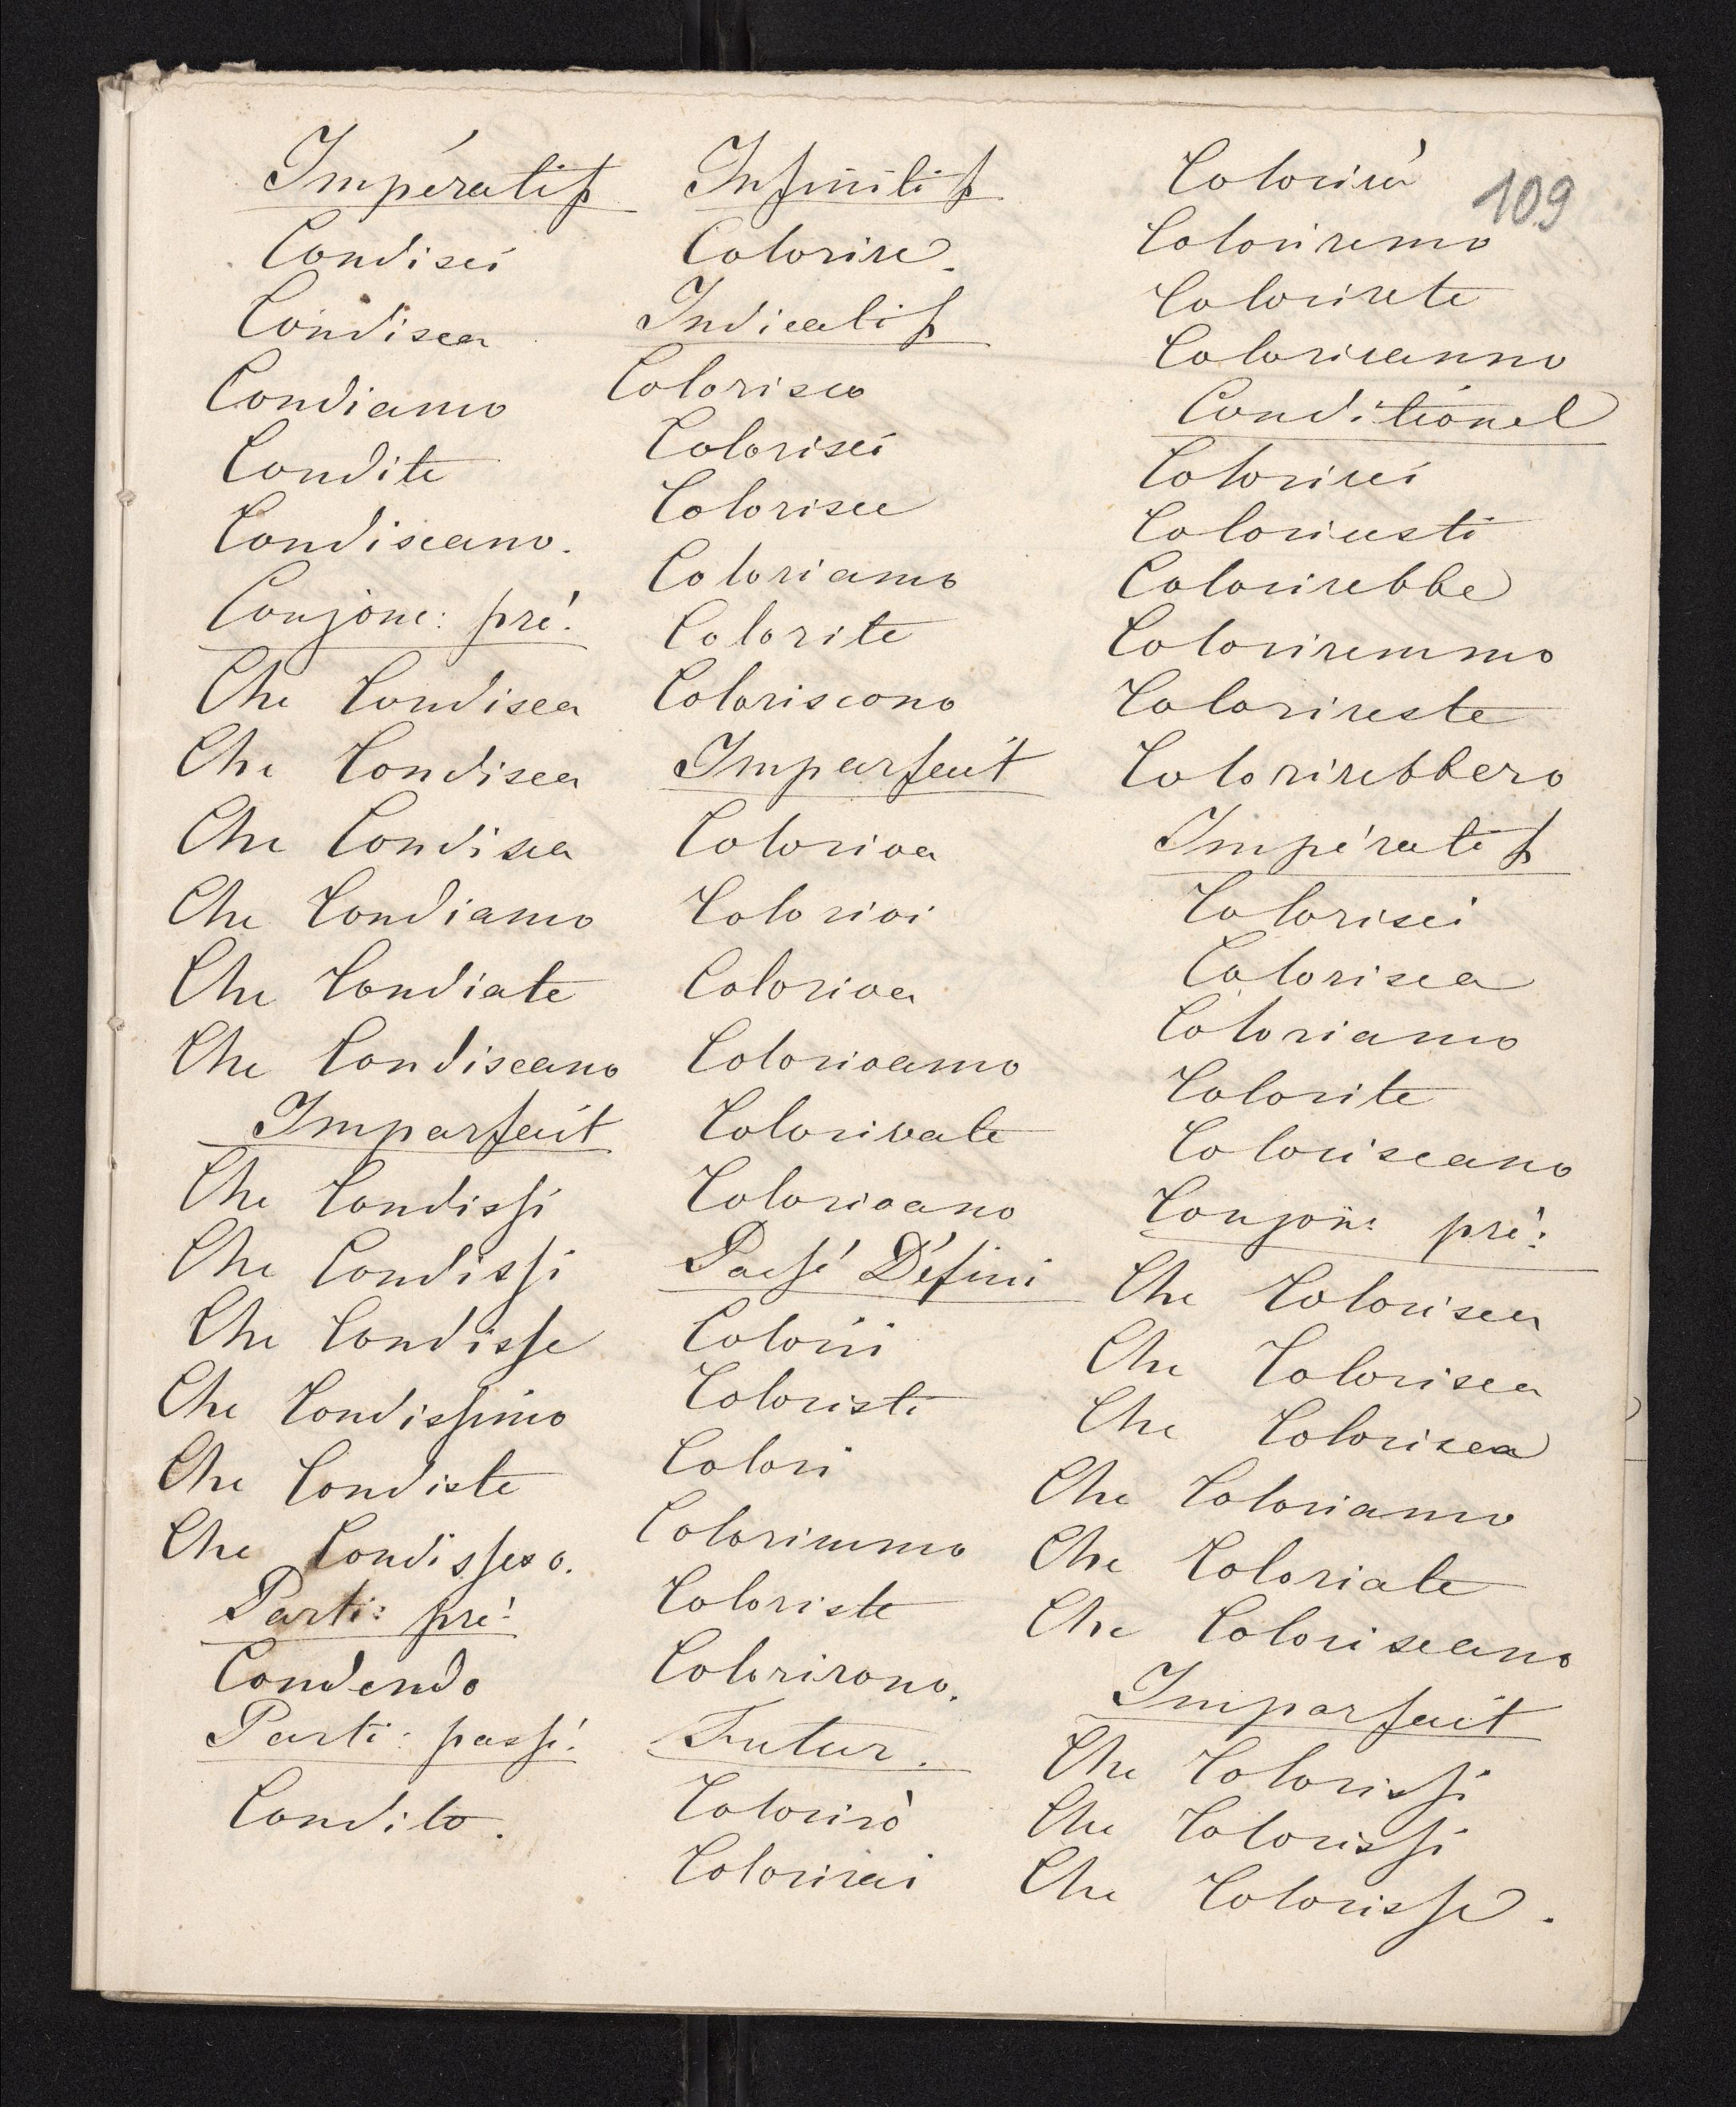 Impératif
Condisci
Condisca
Condiamo
Condite
Condiscano.
Conjonc: pré:
Che Condisca
Che Condisca
Che Condisca
Che Condiamo
Che Condiate
Che Condiscano
Imparfait
Che Condissi
Che Condissi
Che Condisse
Che Condissimo
Che Condiste
Che Condissero.
Parti: pré:
Condendo
Parti: passé:
Condito.
Infinitif
Colorire.
Indicatif
Colorisco
Colorisci
Colorisce
Coloriamo
Colorite
Coloriscono
Imparfait
Coloriva
Colorivi
Coloriva
Colorivamo
Colorivate
Colorivano
Passé Défini
Colorii
Coloristi
Colori
Colorimmo
Coloriste
Colorirono.
Futur.
Colorirò
Colorirai
109
Colorirà
Coloriremo
Colorirete
Coloriranno
Conditionel
Colorirei
Coloriresti
Colorirebbe
Coloriremmo
Colorireste
Colorirebbero
Impératif
Colorisci
Colorisca
Coloriamo
Colorite
Coloriscano
Conjon: pré:
Che Colorisca
Che Colorisca
Che Colorisca
Che Coloriamo
Che Coloriate
Che Coloriscano
Imparfait
Che Colorissi
Che Colorissi
Che Colorisse.